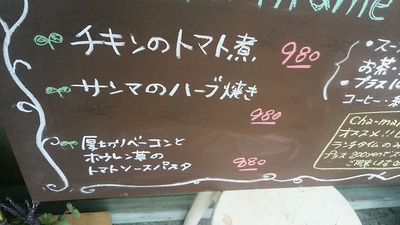 チキンのトマト煮 980
サンマのハーブ焼き
980
厚切りベーコンと
ホウレン草の
トマトソースパスタ 880
・スー
お茶
・プラス
コーヒー・
Cha-ma
オススメ!!
ランチタイムのみ
プラス